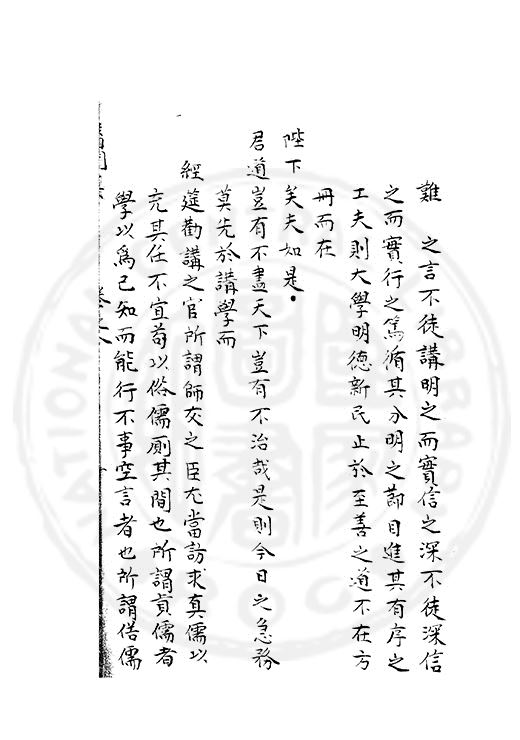 難 之言不徒講明之而實信之深不徒深信
之而實行之篤循其分明之節目進其有序之
工夫則大學明德新民止於至善之道不在方
冊而在
陛下矣夫如是
君道豈有不盡天下豈有不治哉是則今日之急務
莫先於講學而
經筵勸講之官所謂師友之臣尤當訪求真儒以
充其任不宜苟以俗儒厠其間也所謂真儒者
學以為己知而能行不事空言者也所謂俗儒